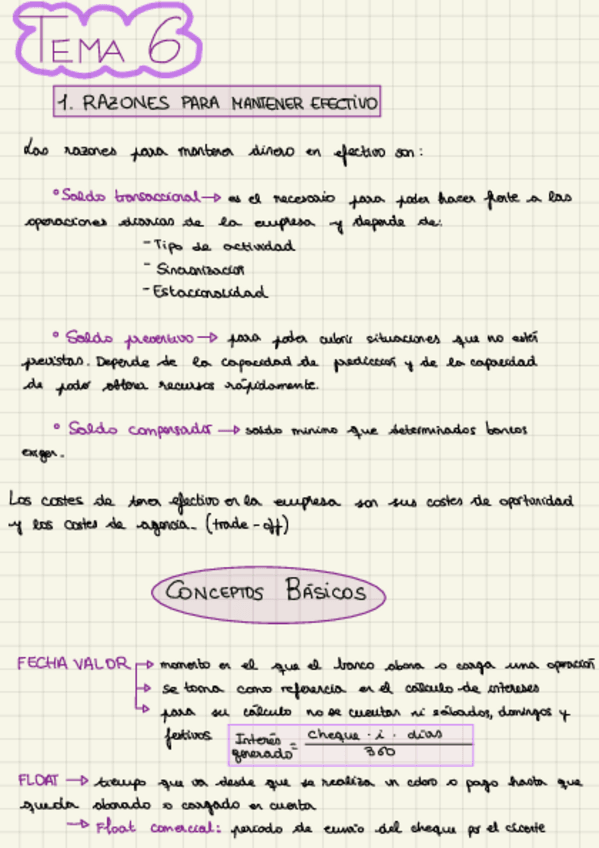 TEMA 6
1. RAZONES PARA MANTENER EFECTIVO
Las razones para mantener dinero en efectivo son:
° Saldo transaccional → es el necesario para poder hacer frente a las
operaciones diarias de la empresa y depende de:
- Tipo de actividad
- Sincronización
- Estacionalidad
° Saldo preventivo → para poder cubrir situaciones que no estén
previstas. Depende de la capacidad de predicción y de la capacidad
de poder obtener recursos rápidamente.
° Saldo compensador → saldo mínimo que determinados bancos
exigen.
Los costes de tener efectivo en la empresa son sus costes de oportunidad
y los costes de agencia. (trade-off)
CONCEPTOS BÁSICOS
FECHA VALOR → momento en el que el banco abona o carga una operación
→ se toma como referencia en el cálculo de intereses
→ para su cálculo no se cuentan ni sábados, domingos y
festivos
Interés generado = cheque · i · días / 360
FLOAT → tiempo que va desde que se realiza un cobro o pago hasta que
queda abonado o cargado en cuenta
→ Float comercial: periodo de envío del cheque por el cliente